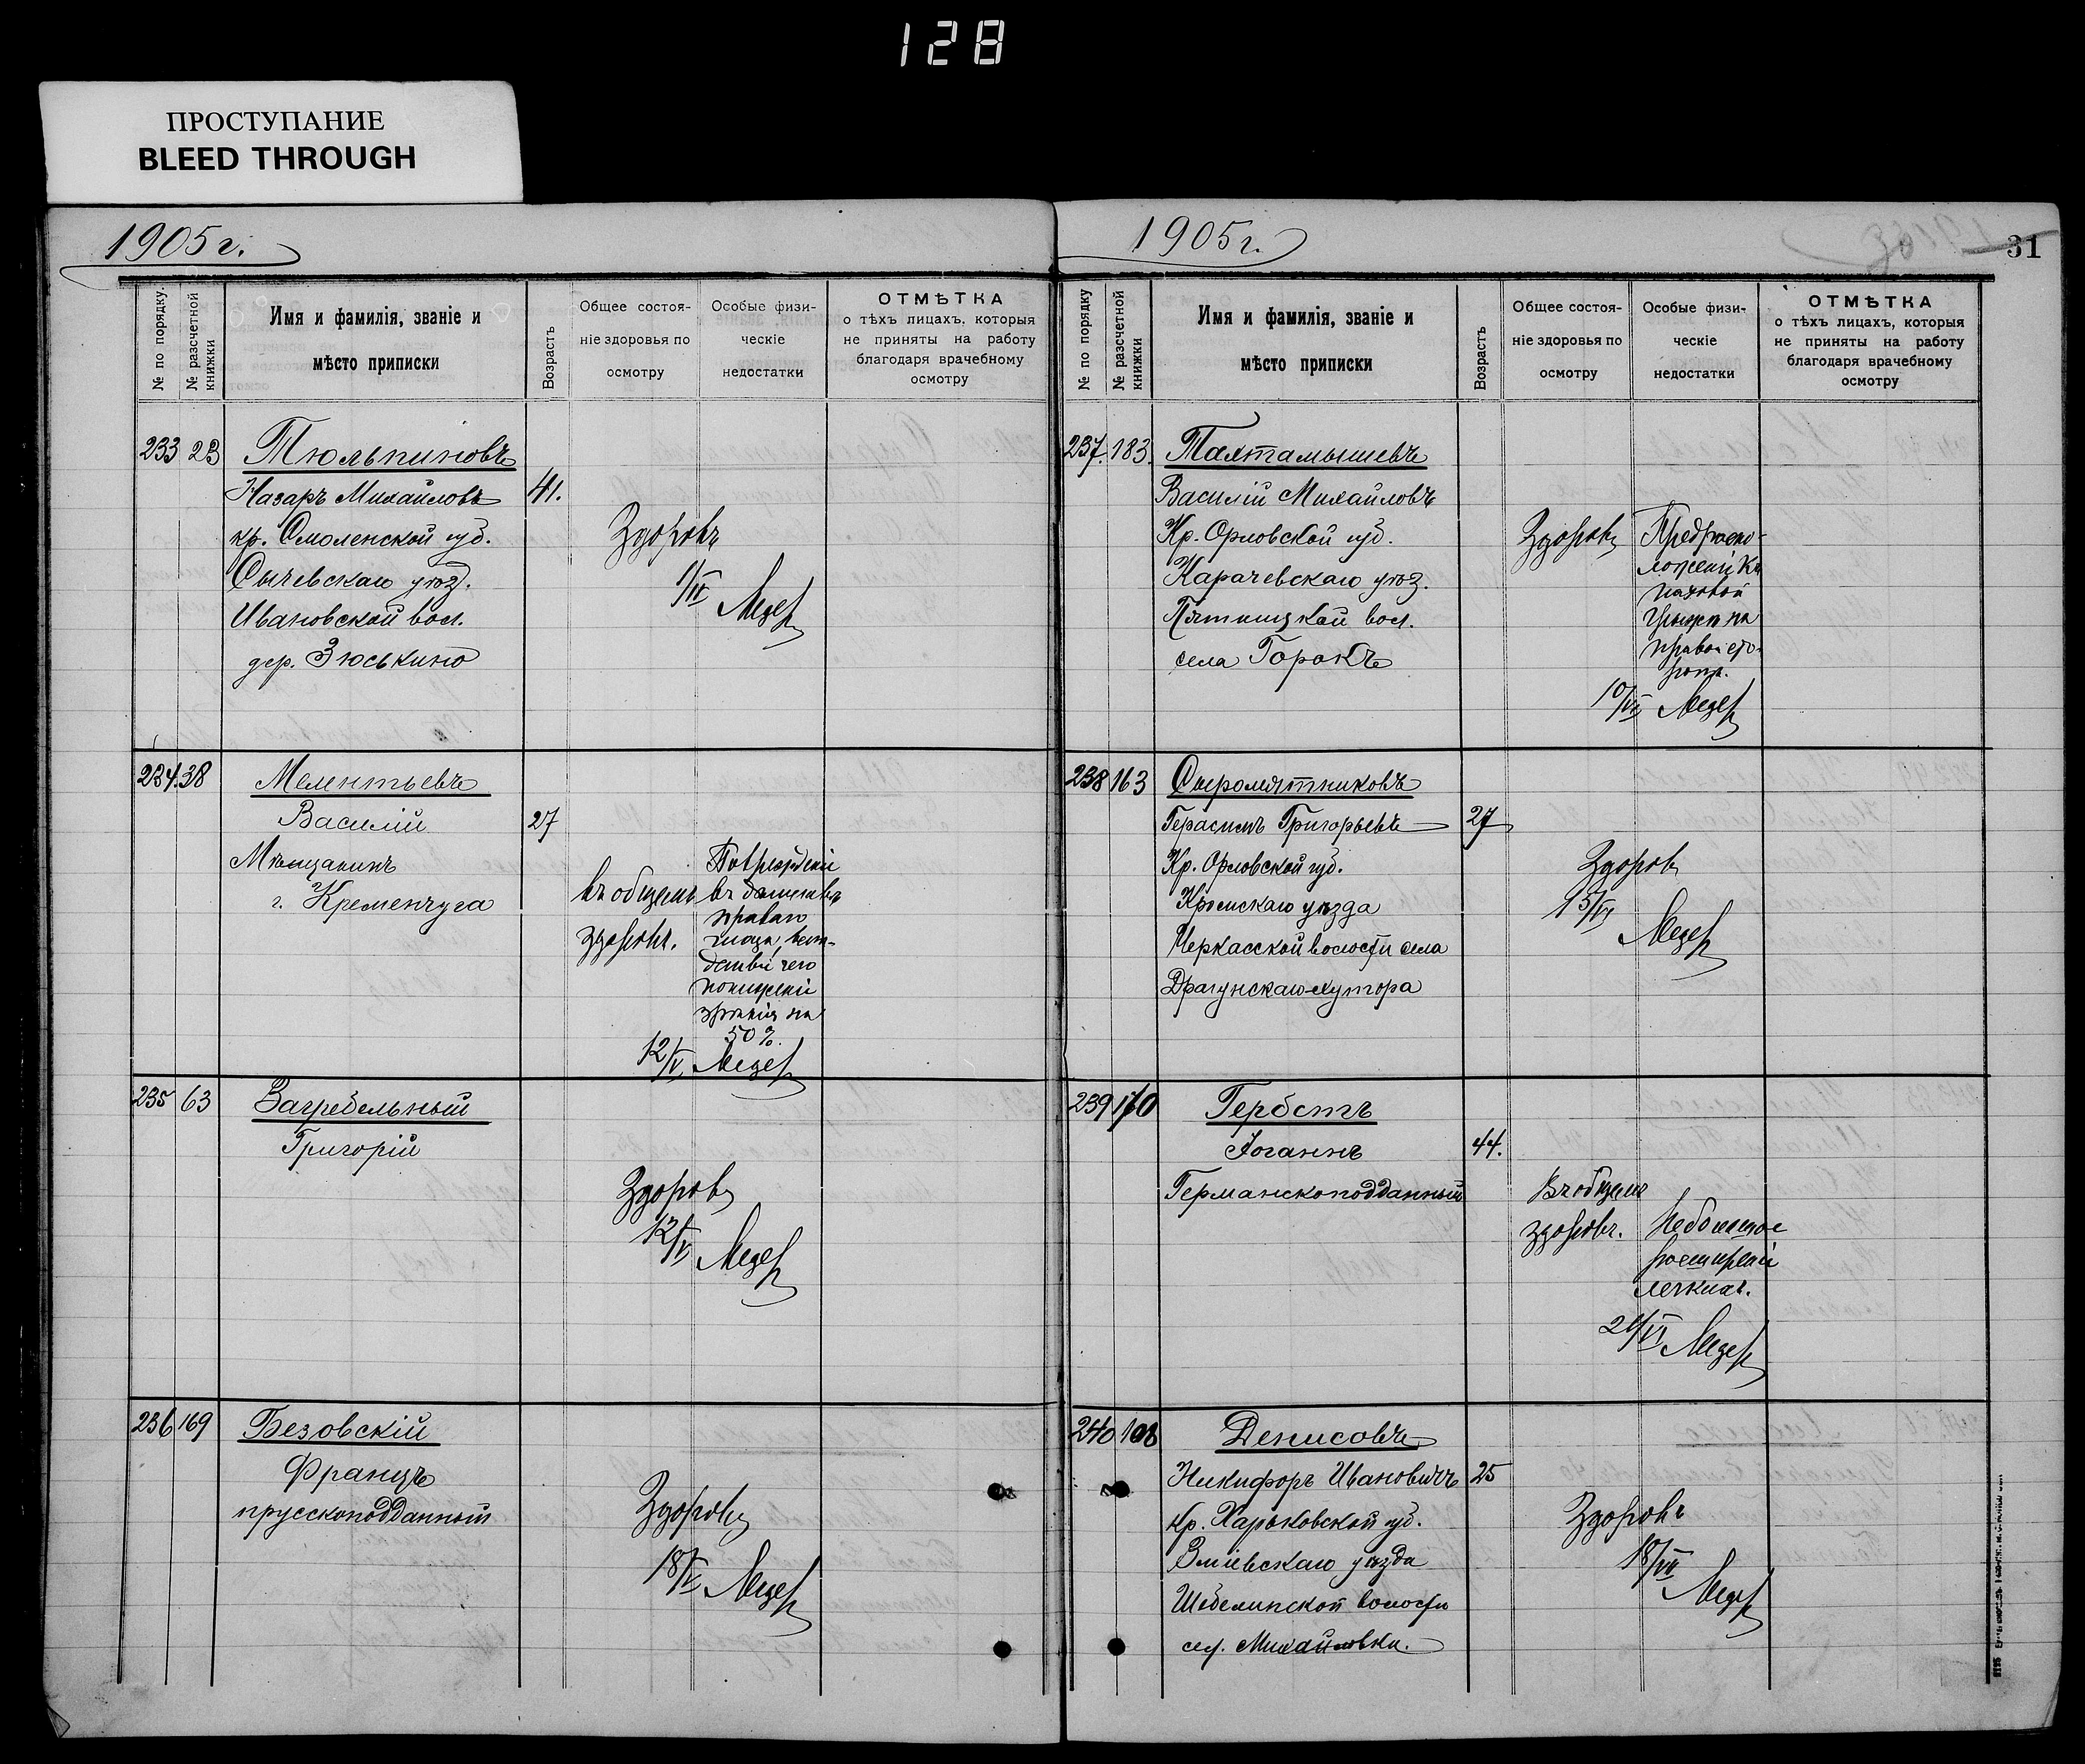 128
ПРОСТУПАНИЕ
BLEED THROUGH
1905 г.
№ по порядку.
№ разсчетной книжки
Имя и фамилія, званіе и
мѣсто приписки
Возрастъ
Общее состоя-
ніе здоровья по
осмотру
Особые физи-
ческіе
недостатки
ОТМѢТКА
о тѣхъ лицахъ, которыя
не приняты на работу
благодаря врачебному
осмотру
233 23 Тюльпиновъ
Назаръ Михайловъ 41.
кр. Смоленской губ. Здоровъ
Сычевскаго уѣз.
Ивановской вол.
дер. Зюськино
234. 38 Мелентьевъ
Василій 27
Мѣщанинъ
г. Кременчуга
въ общемъ
здоровъ.
Поврежденіе
въ
праваго
глаза, вслѣд-
ствіе чего
пониженіе
зрѣнія на
50%.
12/V
235 63 Загребельный
Григорій
Здоровъ
12/V
236 169 Безовскій
Францъ
прусскоподданный
Здоровъ
18/V
1905 г.
31
№ по порядку
№ разсчетной книжки
Имя и фамилія, званіе и
мѣсто приписки
Возрастъ
Общее состоя-
ніе здоровья по
осмотру
Особые физи-
ческіе
недостатки
ОТМѢТКА
о тѣхъ лицахъ, которыя
не приняты на работу
благодаря врачебному
осмотру
237. 183. Тахтамышевъ
Василій Михайловъ
Кр. Орловской губ. Здоровъ
Карачевскаго уѣз.
Пятницкой вол.
села Горокъ
Предраспо-
ложеніе къ
паховой
грыжѣ на
правой сто-
ронѣ.
10/VI
238 163 Сыромятниковъ
Герасимъ Григорьевъ 27
Кр. Орловской губ. Здоровъ
Кромскаго уѣзда
Черкасской волости села
Драгунскаго хутора
15/VI
239 170 Гербстъ
Іоганнъ 44.
Германскоподданный
Въ общемъ
здоровъ.
Небольшое
расширеніе
легкихъ.
21/VI
240 Денисовъ
Никифоръ Ивановичъ 25
кр. Харьковской губ. Здоровъ
Зміевскаго уѣзда
Шебелинской волости
сел. Михайловки.